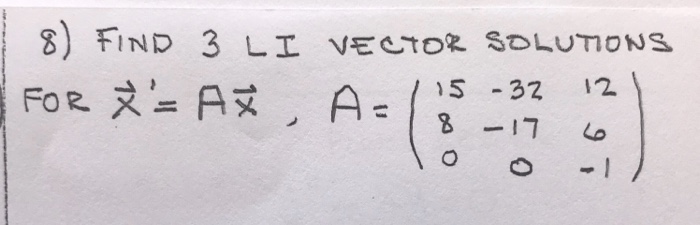 8) FIND 3 LI VECTOR SOLUTIONS
FOR x⃗' = Ax⃗, A = ( 15 -32 12
8 -17 6
0 0 -1 )